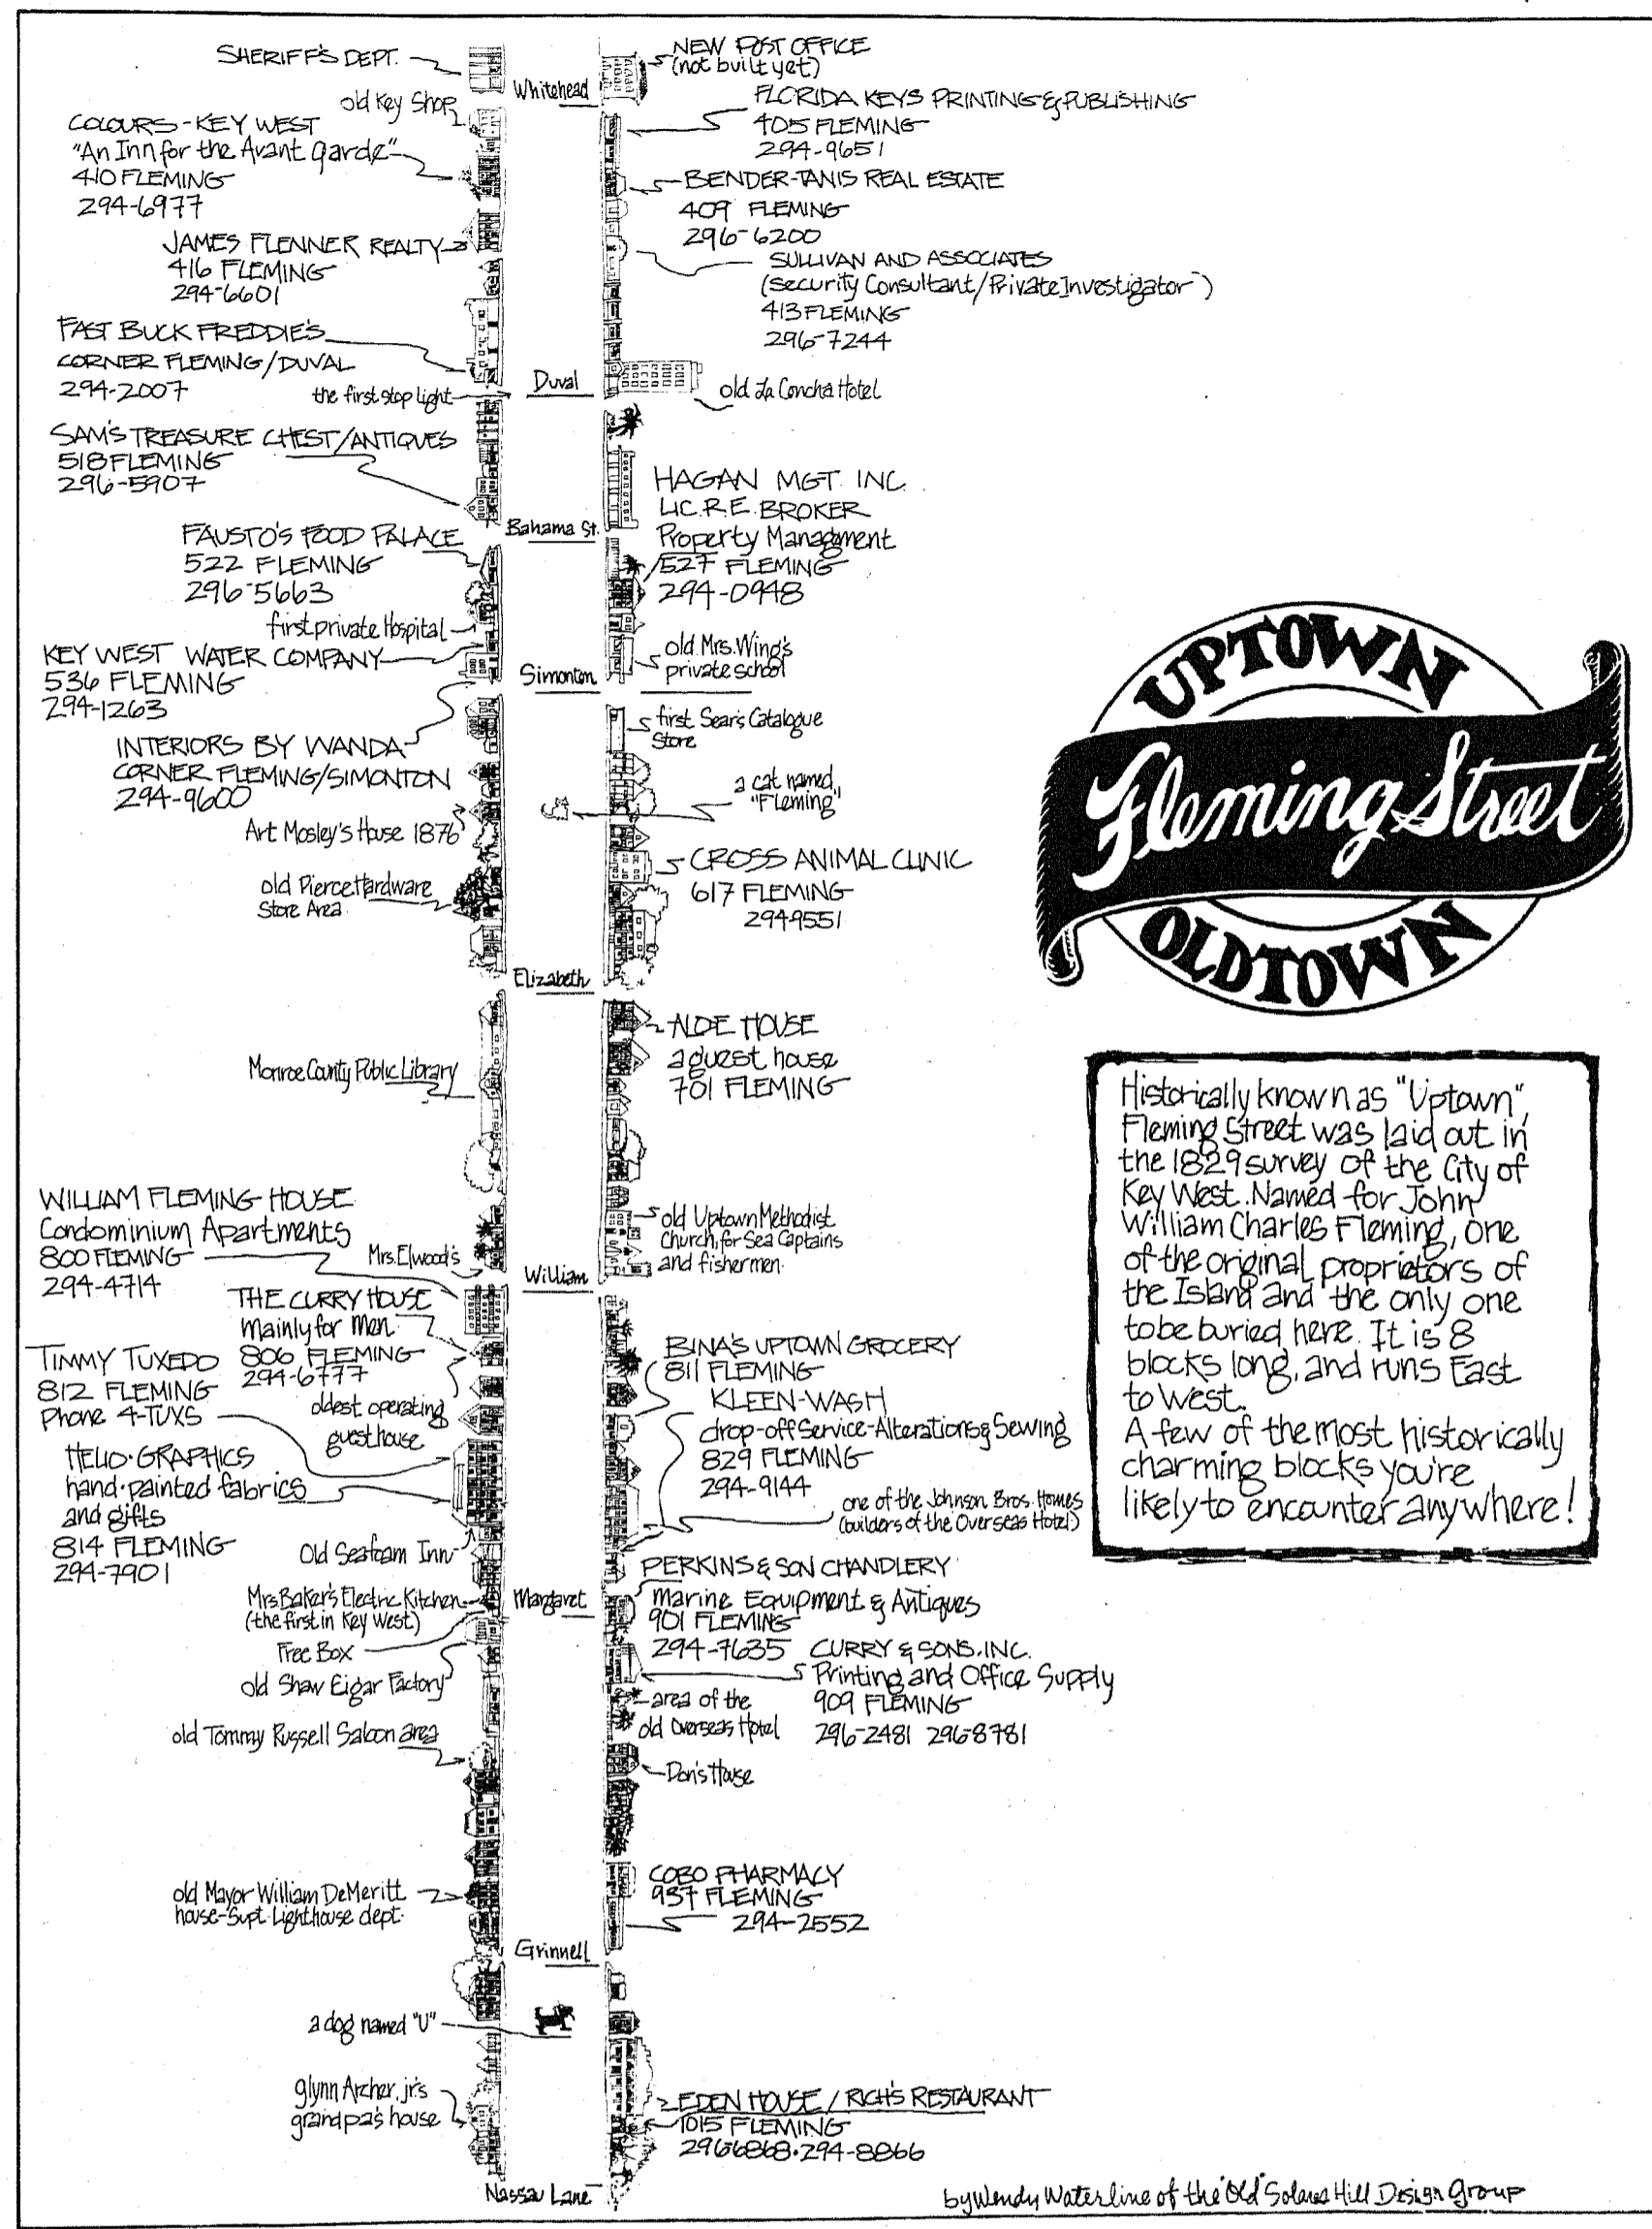 SHERIFF'S DEPT.
old Key Shop
COLOURS-KEY WEST
"An Inn for the Avant garde"
410 FLEMING
294-6977
JAMES FLENNER REALTY
416 FLEMING
294-6601
FAST BUCK FREDDIE'S
CORNER FLEMING/DUVAL
294-2007
the first stop light
SAM'S TREASURE CHEST/ANTIQUES
518 FLEMING
296-5907
FAUSTO'S FOOD PALACE
522 FLEMING
296-5663
first private Hospital
KEY WEST WATER COMPANY
536 FLEMING
294-1263
INTERIORS BY WANDA
CORNER FLEMING/SIMONTON
294-9600
Art Mosley's House 1876
old Pierce Hardware
Store Area
Monroe County Public Library
WILLIAM FLEMING HOUSE
Condominium Apartments
800 FLEMING
294-4714
Mrs. Elwood's
THE CURRY HOUSE
Mainly for Men
806 FLEMING
294-6777
oldest operating
guesthouse
TIMMY TUXEDO
812 FLEMING
Phone 4-TUXS
HELIO·GRAPHICS
hand·painted fabrics
and gifts
814 FLEMING
294-7901
Old Seafoam Inn
Mrs Baker's Electric Kitchen
(the first in Key West)
Free Box
old Shaw Cigar Factory
old Tommy Russell Saloon area
old Mayor William DeMeritt
house-Supt. Lighthouse dept.
a dog named "U"
glynn Archer, jr's
grandpa's house
Whitehead
Duval
Bahama St.
Simonton
Elizabeth
William
Margaret
Grinnell
Nassau Lane
NEW POST OFFICE
(not built yet)
FLORIDA KEYS PRINTING & PUBLISHING
405 FLEMING
294-9651
BENDER-TANIS REAL ESTATE
409 FLEMING
296-6200
SULLIVAN AND ASSOCIATES
(Security Consultant/Private Investigator)
413 FLEMING
296-7244
old La Concha Hotel
HAGAN MGT. INC.
LIC. R.E. BROKER
Property Managment
527 FLEMING
294-0948
old Mrs. Wing's
private school
first Sear's Catalogue
Store
a cat named
"Fleming"
CROSS ANIMAL CLINIC
617 FLEMING
294-9551
ALDE HOUSE
a guest house
701 FLEMING
old Uptown Methodist
Church, for Sea Captains
and fishermen.
BINA'S UPTOWN GROCERY
811 FLEMING
KLEEN-WASH
drop-off Service-Alterations & Sewing
829 FLEMING
294-9144
one of the Johnson Bros. Homes
(builders of the Overseas Hotel)
PERKINS & SON CHANDLERY
Marine Equipment & Antiques
901 FLEMING
294-7635
CURRY & SONS. INC.
Printing and Office Supply
909 FLEMING
296-2481 296-8781
area of the
old Overseas Hotel
Don's House
COBO PHARMACY
937 FLEMING
294-2552
EDEN HOUSE / RICH'S RESTAURANT
1015 FLEMING
296-6868·294-8866
UPTOWN
Fleming Street
OLDTOWN
Historically known as "Uptown",
Fleming Street was laid out in
the 1829 survey of the City of
Key West. Named for John
William Charles Fleming, one
of the original proprietors of
the Island and the only one
to be buried here. It is 8
blocks long, and runs East
to West.
A few of the most historically
charming blocks you're
likely to encounter anywhere!
by Wendy Waterline of the "Old" Solares Hill Design Group